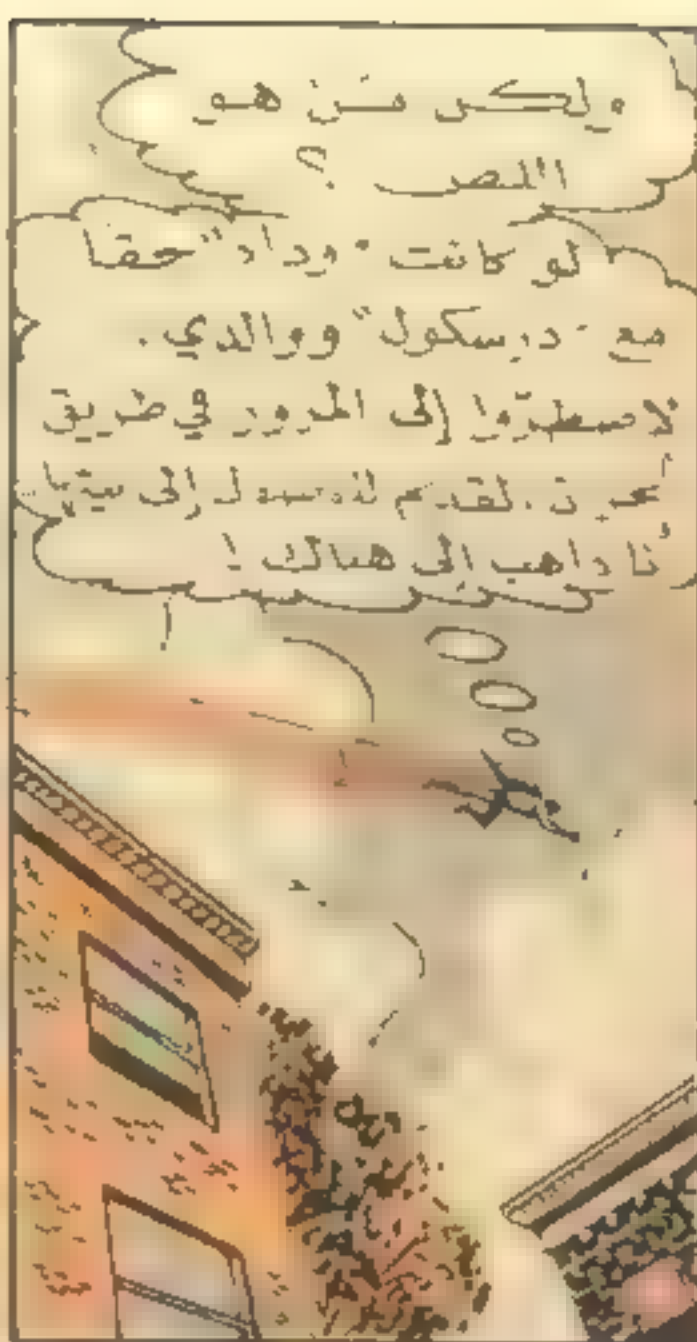 ولكن مَن هو
اللص ؟
لو كانت "وداد" حقا
مع "دريسكول" ووالدي .
لاضطرّوا إلى المرور في طريق
إلى بيتها
أنا ذاهب إلى هناك !